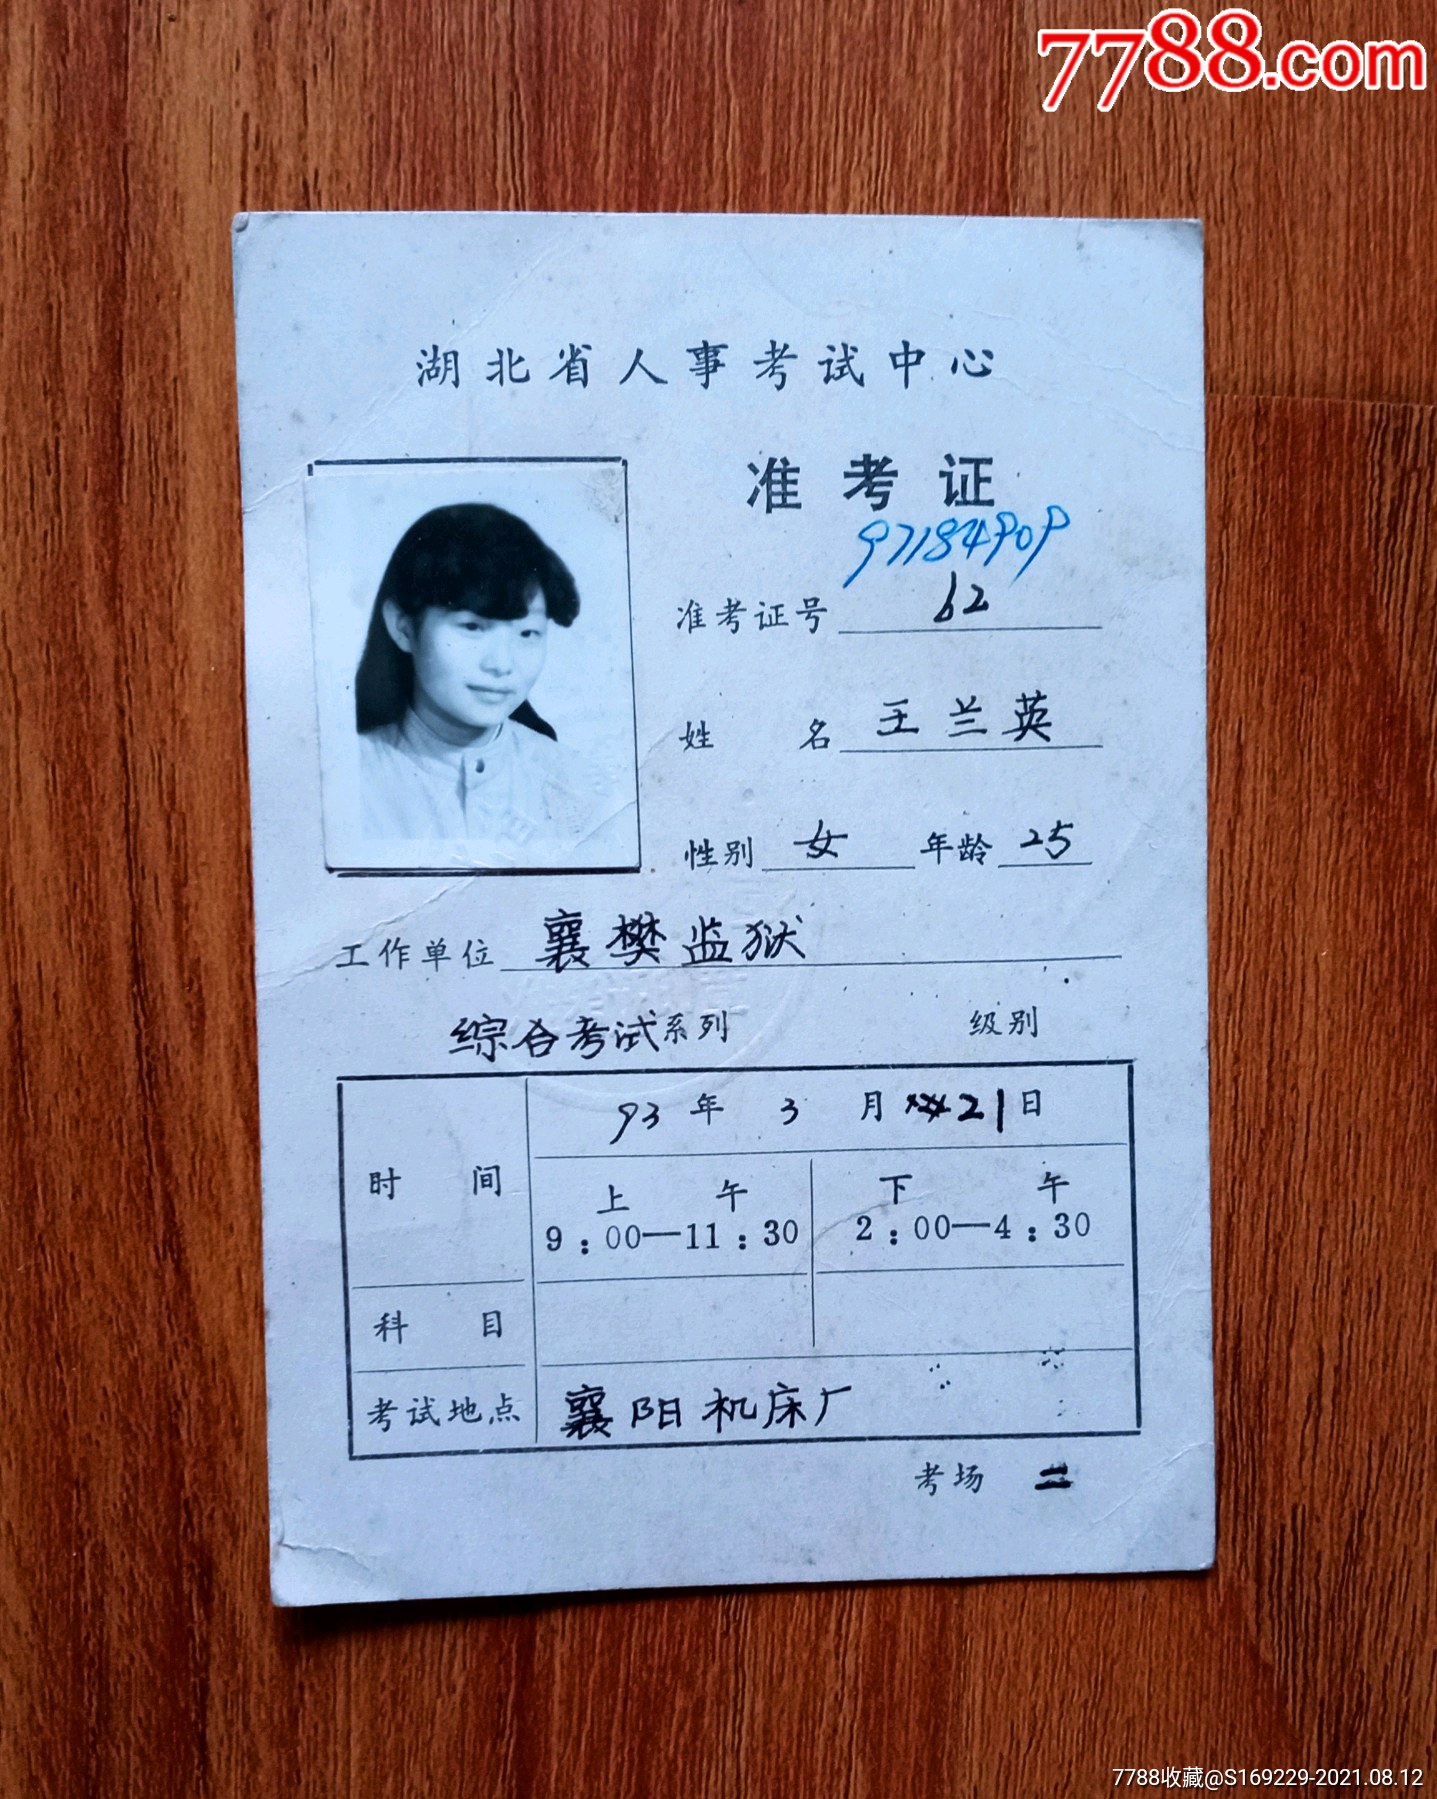 7788.com
湖北省人事考试中心
准考证
97184909
准考证号 62
姓名 王兰英
性别 女 年龄 25
工作单位 襄樊监狱
综合考试系列 级别
时间 93年3月21日
上午 下午
9:00—11:30 2:00—4:30
科目
考试地点 襄阳机床厂
考场 二
7788收藏@S169229-2021.08.12